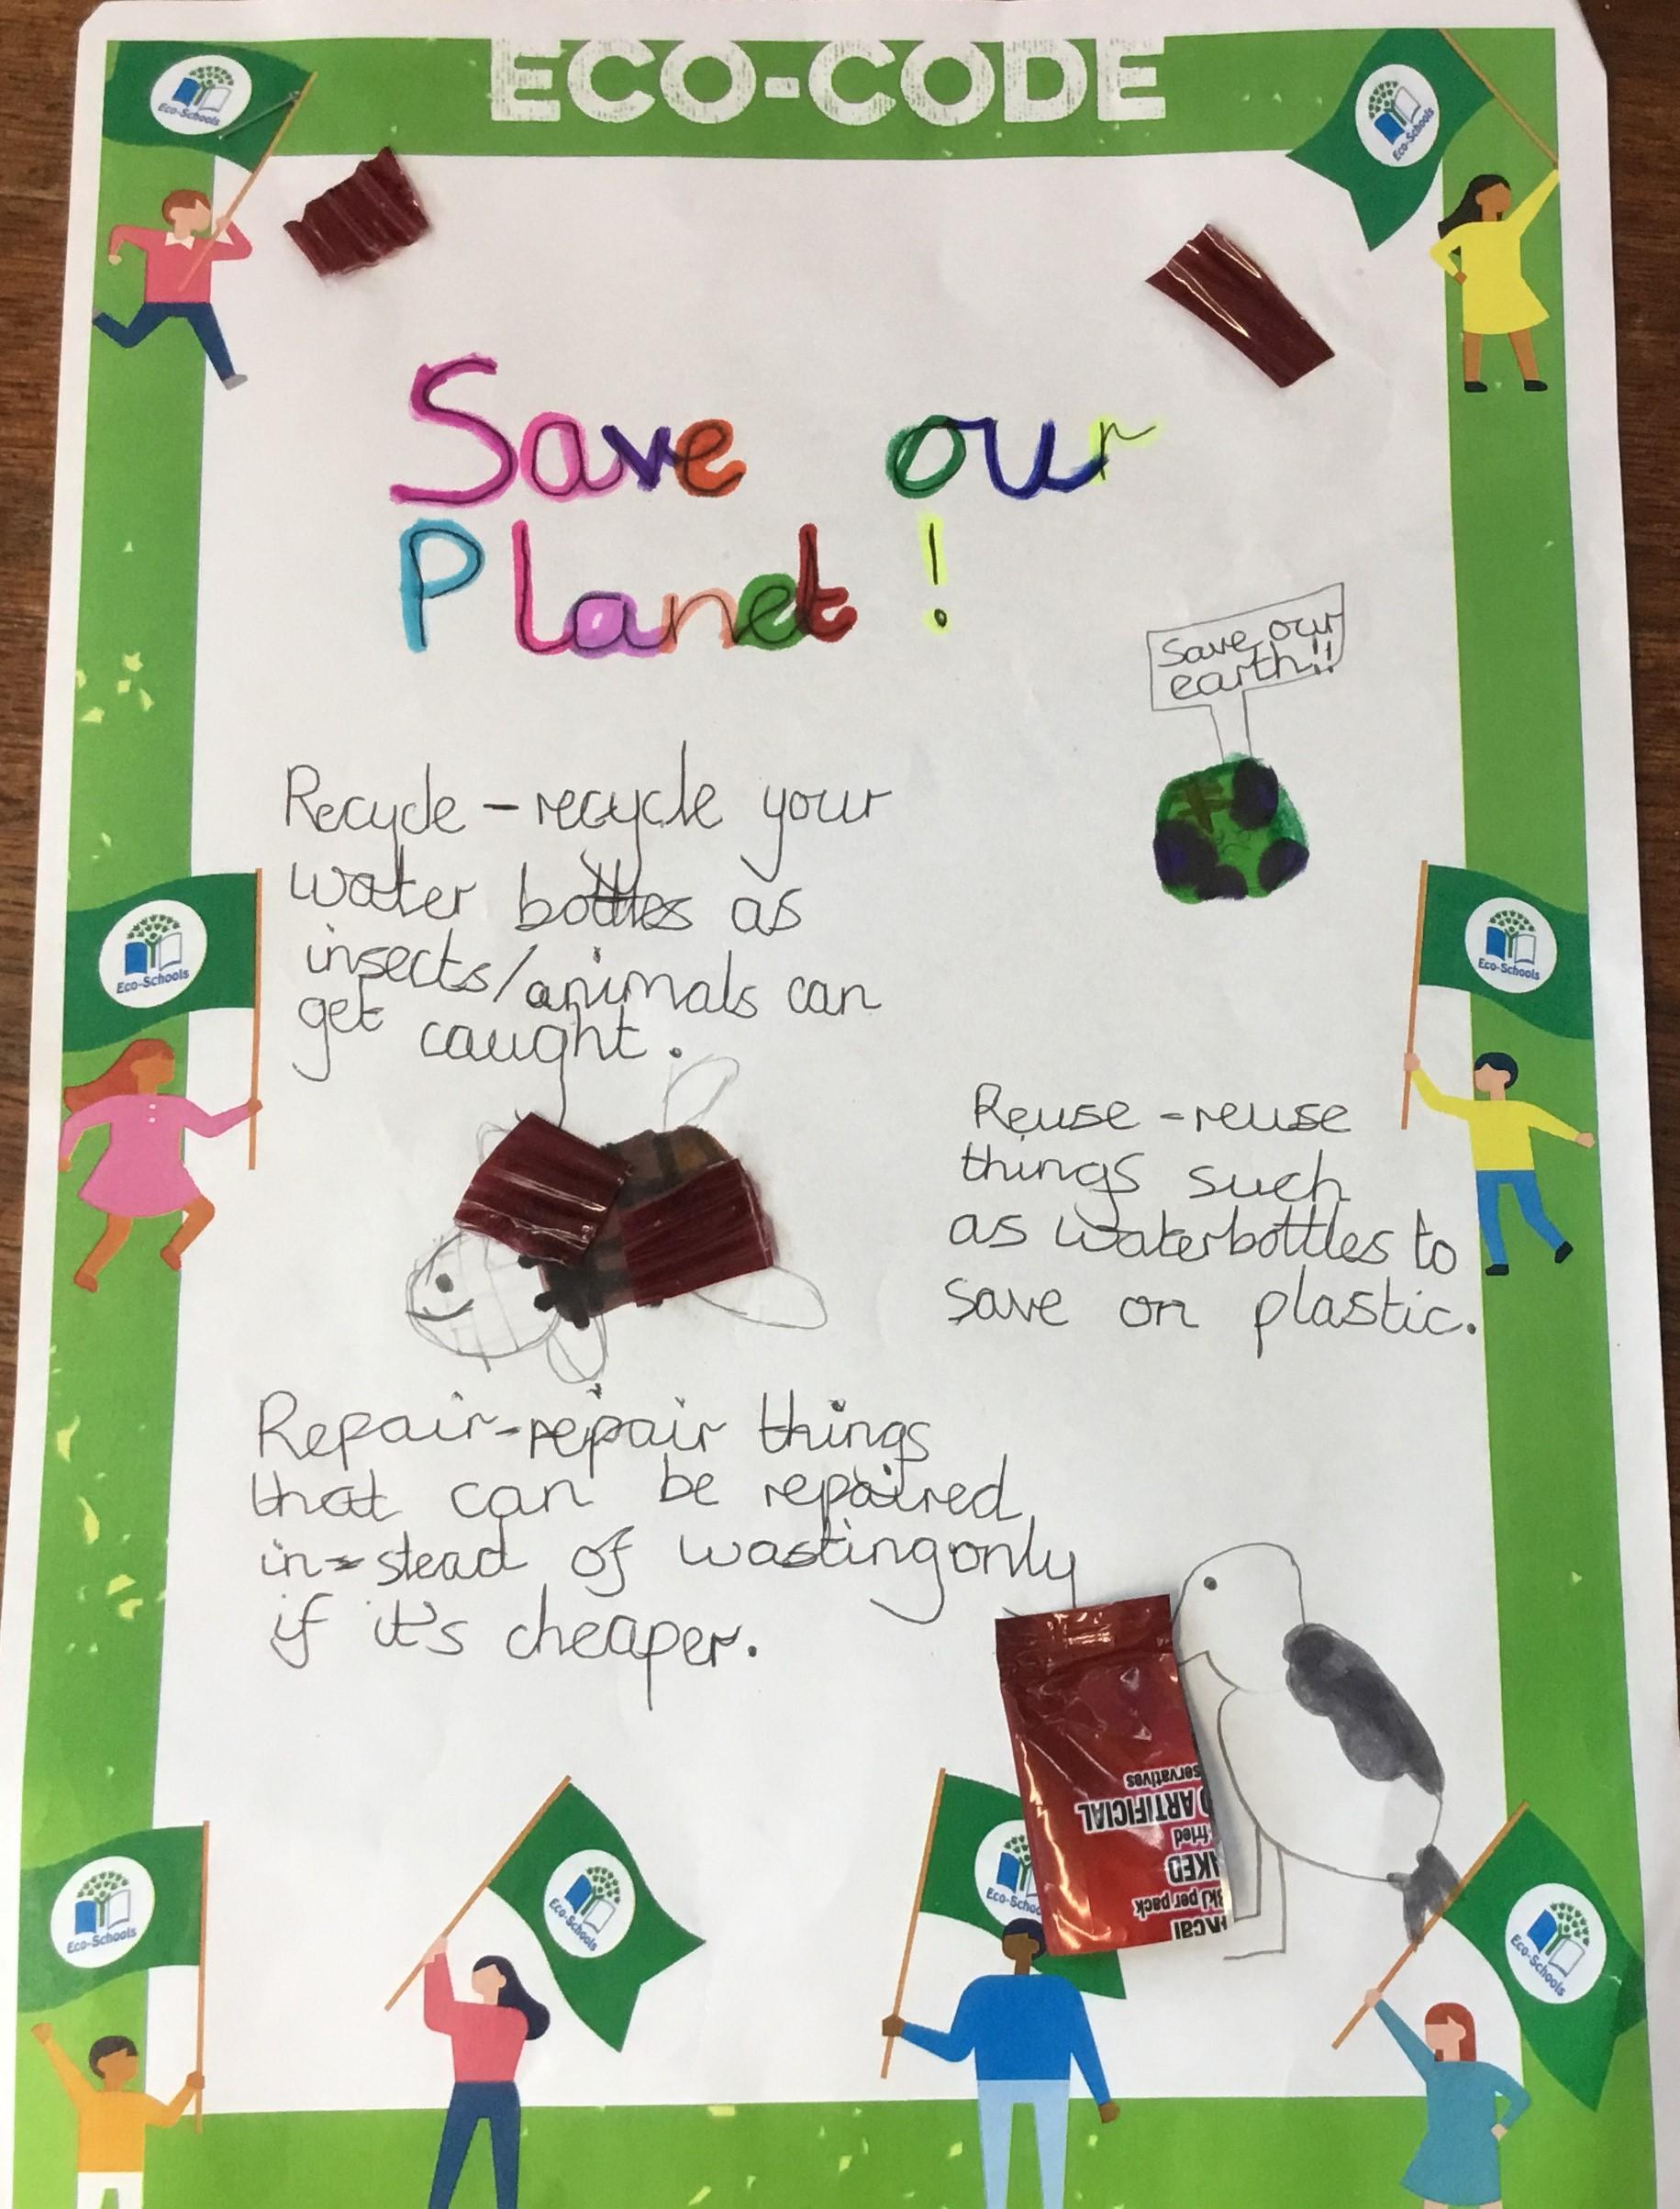 ECO-CODE
Eco-Schools
Eco-Schools
Save our
Planet!
Save our
earth!!
Recycle - recycle your
water bottles as
insects/animals can
get caught.
Eco-Schools
Eco-Schools
Reuse - reuse
things such
as waterbottles to
save on plastic.
Repair - repair things
that can be repaired
in-stead of wasting only
if it's cheaper.
servatives
ARTIFICIAL
fried
AKED
kJ per pack
kcal
Eco-Schools
Eco-Schools
Eco-Schoo
Eco-Schools